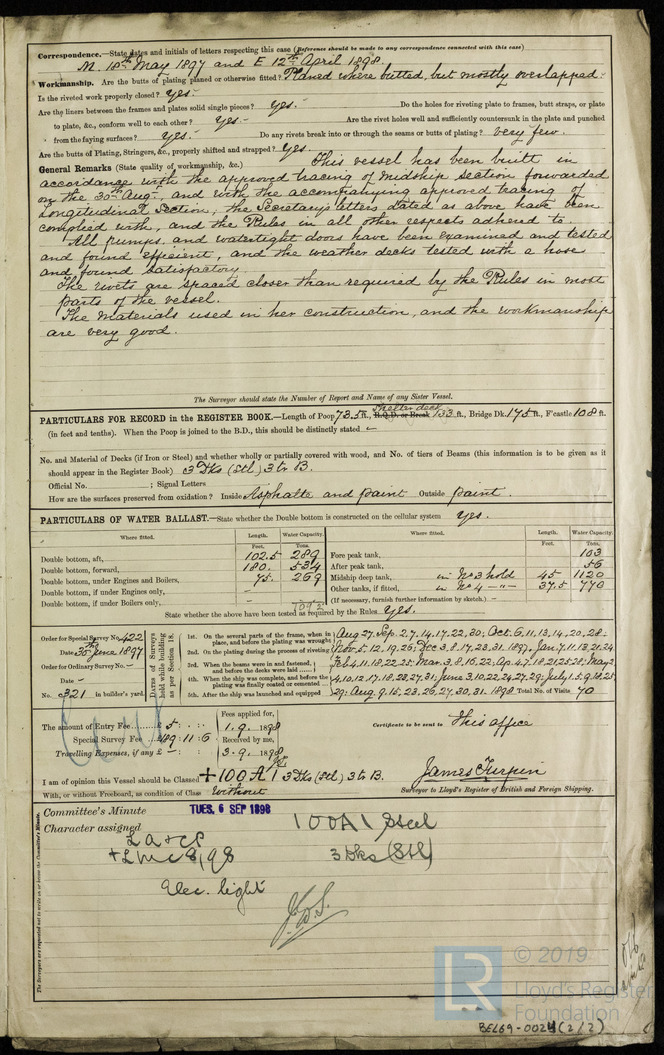 Correspondence.—State dates and initials of letters respecting this case (Reference should be made to any correspondence connected with this case)
M. 18th May 1897 and E 12th April 1898.
Workmanship. Are the butts of plating planed or otherwise fitted? Planed where butted, but mostly overlapped.
Is the riveted work properly closed? Yes.
Are the liners between the frames and plates solid single pieces? Yes. Do the holes for riveting plate to frames, butt straps, or plate
to plate, &c., conform well to each other? Yes. Are the rivet holes well and sufficiently countersunk in the plate and punched
from the faying surfaces? Yes. Do any rivets break into or through the seams or butts of plating? Very few.
Are the butts of Plating, Stringers, &c., properly shifted and strapped? Yes.
General Remarks (State quality of workmanship, &c.) This vessel has been built in
accordance with the approved tracing of midship section forwarded
on the 30th Aug., and with the accompanying approved tracing of
Longitudinal Section, the Secretary's letters dated as above have been
complied with, and the Rules in all other respects adhered to.
All pumps, and watertight doors have been examined and tested
and found efficient, and the weather decks tested with a hose
and found satisfactory.
The rivets are spaced closer than required by the Rules in most
parts of the vessel.
The materials used in her construction, and the workmanship
are very good.
The Surveyor should state the Number of Report and Name of any Sister Vessel.
Shelter deck
PARTICULARS FOR RECORD in the REGISTER BOOK.—Length of Poop 73.5 ft., R.Q.D. or Break 133 ft., Bridge Dk. 175 ft., F'castle 108 ft.
(in feet and tenths). When the Poop is joined to the B.D., this should be distinctly stated
No. and Material of Decks (if Iron or Steel) and whether wholly or partially covered with wood, and No. of tiers of Beams (this information is to be given as it
should appear in the Register Book) 3 Dks (Stl) 3 to B.
Official No. ; Signal Letters
How are the surfaces preserved from oxidation? Inside Asphalte and paint Outside paint.
PARTICULARS OF WATER BALLAST.—State whether the Double bottom is constructed on the cellular system Yes.
Where fitted. Length. Water Capacity. Where fitted. Length. Water Capacity.
Feet. Tons. Feet. Tons.
Double bottom, aft, 102.5 289 Fore peak tank, 103
Double bottom, forward, 180. 534 After peak tank, 56
Double bottom, under Engines and Boilers, 75. 269 Midship deep tank, in No 3 hold 45 1120
Double bottom, if under Engines only, - Other tanks, if fitted, in No 4 -"- 37.5 770
Double bottom, if under Boilers only, - 1092 (If necessary, furnish further information by sketch.) -
State whether the above have been tested as required by the Rules Yes.
Order for Special Survey No. 422
Date 30th June 1897
Order for Ordinary Survey No. -
Date -
No. 321 in builder's yard.
Dates of Surveys held while building as per Section 18.
1st. On the several parts of the frame, when in place, and before the plating was wrought Aug 27, Sep. 2, 7, 14, 17, 22, 30; Oct. 6, 11, 13, 14, 20, 28;
2nd. On the plating during the process of riveting Nov. 5, 12, 19, 26; Dec 3, 8, 17, 23, 31, 1897. Jan. 7, 11, 13, 21, 24,
3rd. When the beams were in and fastened, and before the decks were laid Feb 4, 11, 18, 22, 25; Mar. 3, 8, 16, 22; Ap. 4, 7, 18, 21, 25, 28; May 2,
4th. When the ship was complete, and before the plating was finally coated or cemented 4, 10, 12, 17, 18, 27, 31; June 3, 10, 22, 24, 27, 29; July 1, 5, 9, 18, 25,
5th. After the ship was launched and equipped 29; Aug. 9, 15, 23, 26, 27, 30, 31. 1898. Total No. of Visits 70
The amount of Entry Fee £ 5 : :
Special Survey Fee £ 189 : 11 : 6
Travelling Expenses, if any £ - : :
Fees applied for,
1. 9. 1898
Received by me,
3. 9. 1898
Certificate to be sent to This office
I am of opinion this Vessel should be Classed +100 A1 3 Dks (Stl) 3 to B.
With, or without Freeboard, as condition of Class Without
James Turpin
Surveyor to Lloyd's Register of British and Foreign Shipping.
Committee's Minute TUES. 6 SEP 1898
Character assigned 100A1 Steel
LA & CP
+LMC 8,98 3 Dks (Stl)
Elec. light
The Surveyors are requested not to write on or below the Committee's Minute.
LR
© 2019
Lloyd's Register
Foundation
BEL69-0024 (2/2)